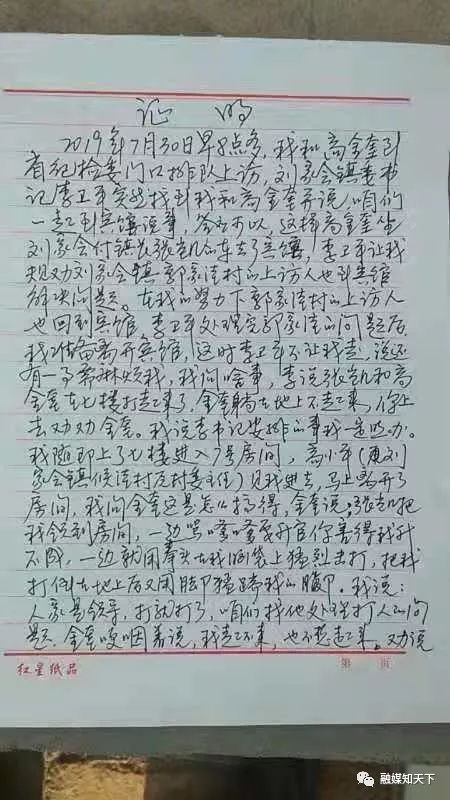 证 明
2019年7月30日早8点多,我和高金奎到
省纪检委门口排队上访,刘家会镇委书
记李卫军突然找到我和高金奎并说,咱们
一起到宾馆说事,答应可以,这样高金奎坐
刘家会付镇长张凯的车去了宾馆,李卫军让我
规劝刘家会镇郭家洼村的上访人也到宾馆
解决问题。在我的努力下郭家洼村的上访人
也回到宾馆,李卫军处理完郭家洼的问题后
我准备离开宾馆,这时李卫军不让我走,说还
有一事需麻烦我,我问啥事,李说张凯和高
金奎在七楼打起来了,金奎躺在地上不起来,你上
去劝劝金奎。我说李书记安排的事我一定照办。
我随即上了七楼进入7号房间,高小军(原刘
家会镇候洼村支村委主任)见我进去,马上离开了
房间,我问金奎这是怎么搞得,金奎说:张凯把
我领到房间,一边骂嚷嚷要升官你害得我升
不成,一边就用拳头在我脑袋上猛烈击打,把我
打倒在地上后又用脚猛踏我的腹部。我说:
人家是领导,打就打了,咱们找他处理打人的问
题.金奎哽咽着说,我起不来,也不想起来。劝说
红星纸品
第 页
融媒知天下